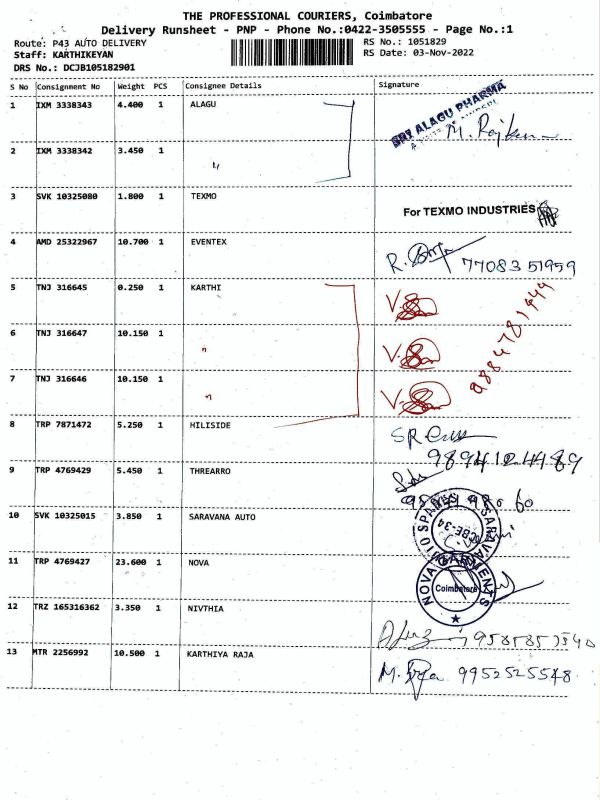 THE PROFESSIONAL COURIERS, Coimbatore
Delivery Runsheet - PNP - Phone No.:0422-3505555 - Page No.:1
Route: P43 AUTO DELIVERY
RS No.: 1051829
Staff: KARTHIKEYAN
RS Date: 03-Nov-2022
DRS No.: DCJB105182901
S No Consignment No Weight PCS Consignee Details Signature
1 IXM 3338343 4.400 1 ALAGU
SRI ALAGU PHARMA
2 IXM 3338342 3.450 1 "
3 SVK 10325080 1.800 1 TEXMO
For TEXMO INDUSTRIES
4 AMD 25322967 10.700 1 EVENTEX
77083 51959
5 TNJ 316645 0.250 1 KARTHI
6 TNJ 316647 10.150 1 "
7 TNJ 316646 10.150 1 "
8 TRP 7871472 5.250 1 HILISIDE
9 TRP 4769429 5.450 1 THREARRO
10 SVK 10325015 3.850 1 SARAVANA AUTO
CBE-34
11 TRP 4769427 23.600 1 NOVA
NOVA GARMENTS
Coimbatore
12 TRZ 165316362 3.350 1 NIVTHIA
13 MTR 2256992 10.500 1 KARTHIYA RAJA
9952525548